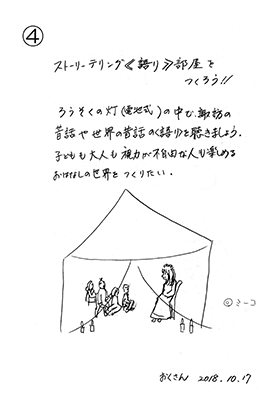 ④
ストーリーテリング≪語り≫部屋を
つくろう!!
ろうそくの灯(電池式)の中で、諏訪の
昔話や世界の昔話の≪語り≫を聴きましょう。
子どもも大人も視力が不自由な人も楽しめる
おはなしの世界をつくりたい。
おくさん 2018.10.17